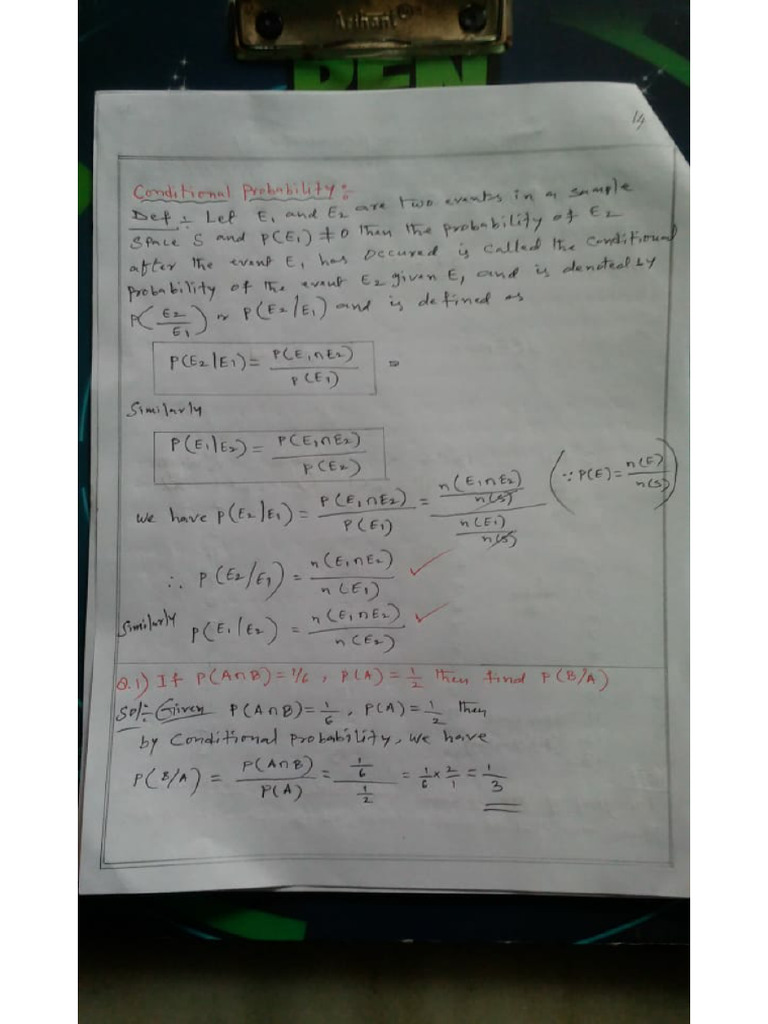 Arihant
BEN
14
Conditional Probability:-
Def :- Let E₁ and E₂ are two events in a sample
space S and P(E₁) ≠ 0 then the probability of E₂
after the event E₁ has occured is called the conditional
probability of the event E₂ given E₁ and is denoted by
P(E₂/E₁) or P(E₂/E₁) and is defined as
P(E₂|E₁) = P(E₁∩E₂) / P(E₁)
Similarly
P(E₁|E₂) = P(E₁∩E₂) / P(E₂)
we have P(E₂|E₁) = P(E₁∩E₂) / P(E₁) = (n(E₁∩E₂) / n(S)) / (n(E₁) / n(S)) (∵ P(E) = n(E) / n(S))
∴ P(E₂/E₁) = n(E₁∩E₂) / n(E₁) ✓
Similarly P(E₁|E₂) = n(E₁∩E₂) / n(E₂) ✓
Q.1) If P(A∩B) = 1/6, P(A) = 1/2 then find P(B/A)
Sol:- Given P(A∩B) = 1/6, P(A) = 1/2 then
by Conditional probability, we have
P(B/A) = P(A∩B) / P(A) = (1/6) / (1/2) = 1/6 × 2/1 = 1/3